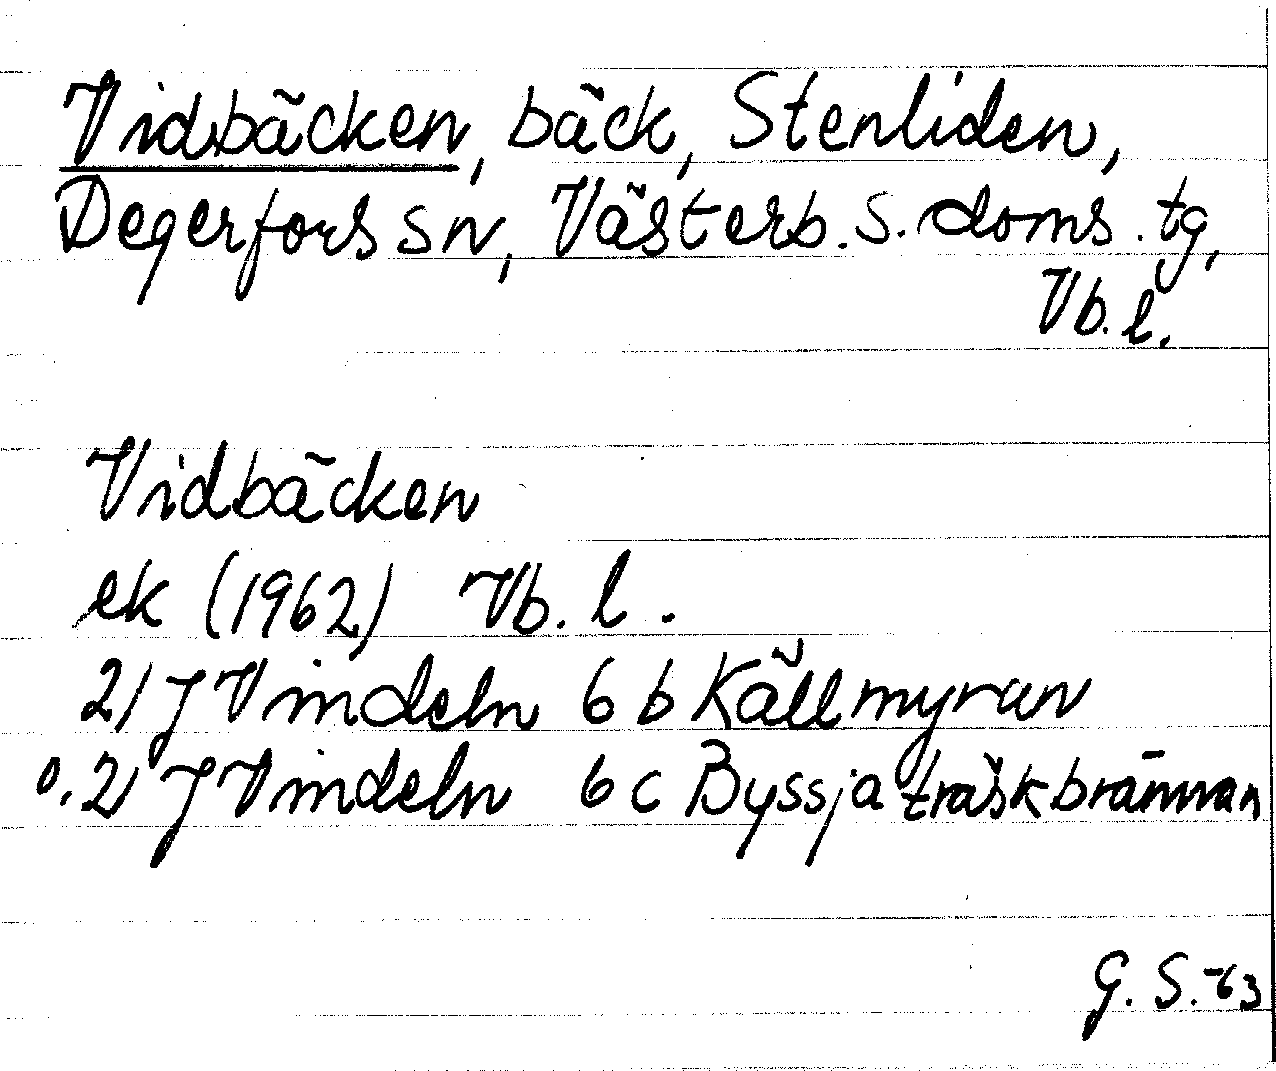 Vidbäcken, bäck, Stenliden,
Degerfors sn, Västerb. s. doms. tg,
Vb. l.
Vidbäcken
ek (1962) Vb. l.
21 J Vindeln 6 b Källmyran
o. 21 J Vindeln 6 c Byssjaträskbrännan
G. S. -63